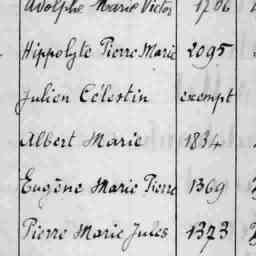 Adolphe Marie Victor 1706
Hippolyte Pierre Marie 2095
Julien Célestin exempt
Albert Marie 1834
Eugène Marie Pierre 1369
Pierre Marie Jules 1373